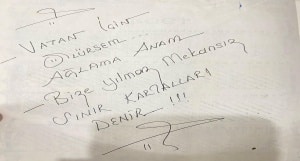 - VATAN İÇİN
ÖLÜRSEM...
AĞLAMA ANAM
- Bize yılmaz Mekansız
SINIR KARTALLARI
DENİR !!!